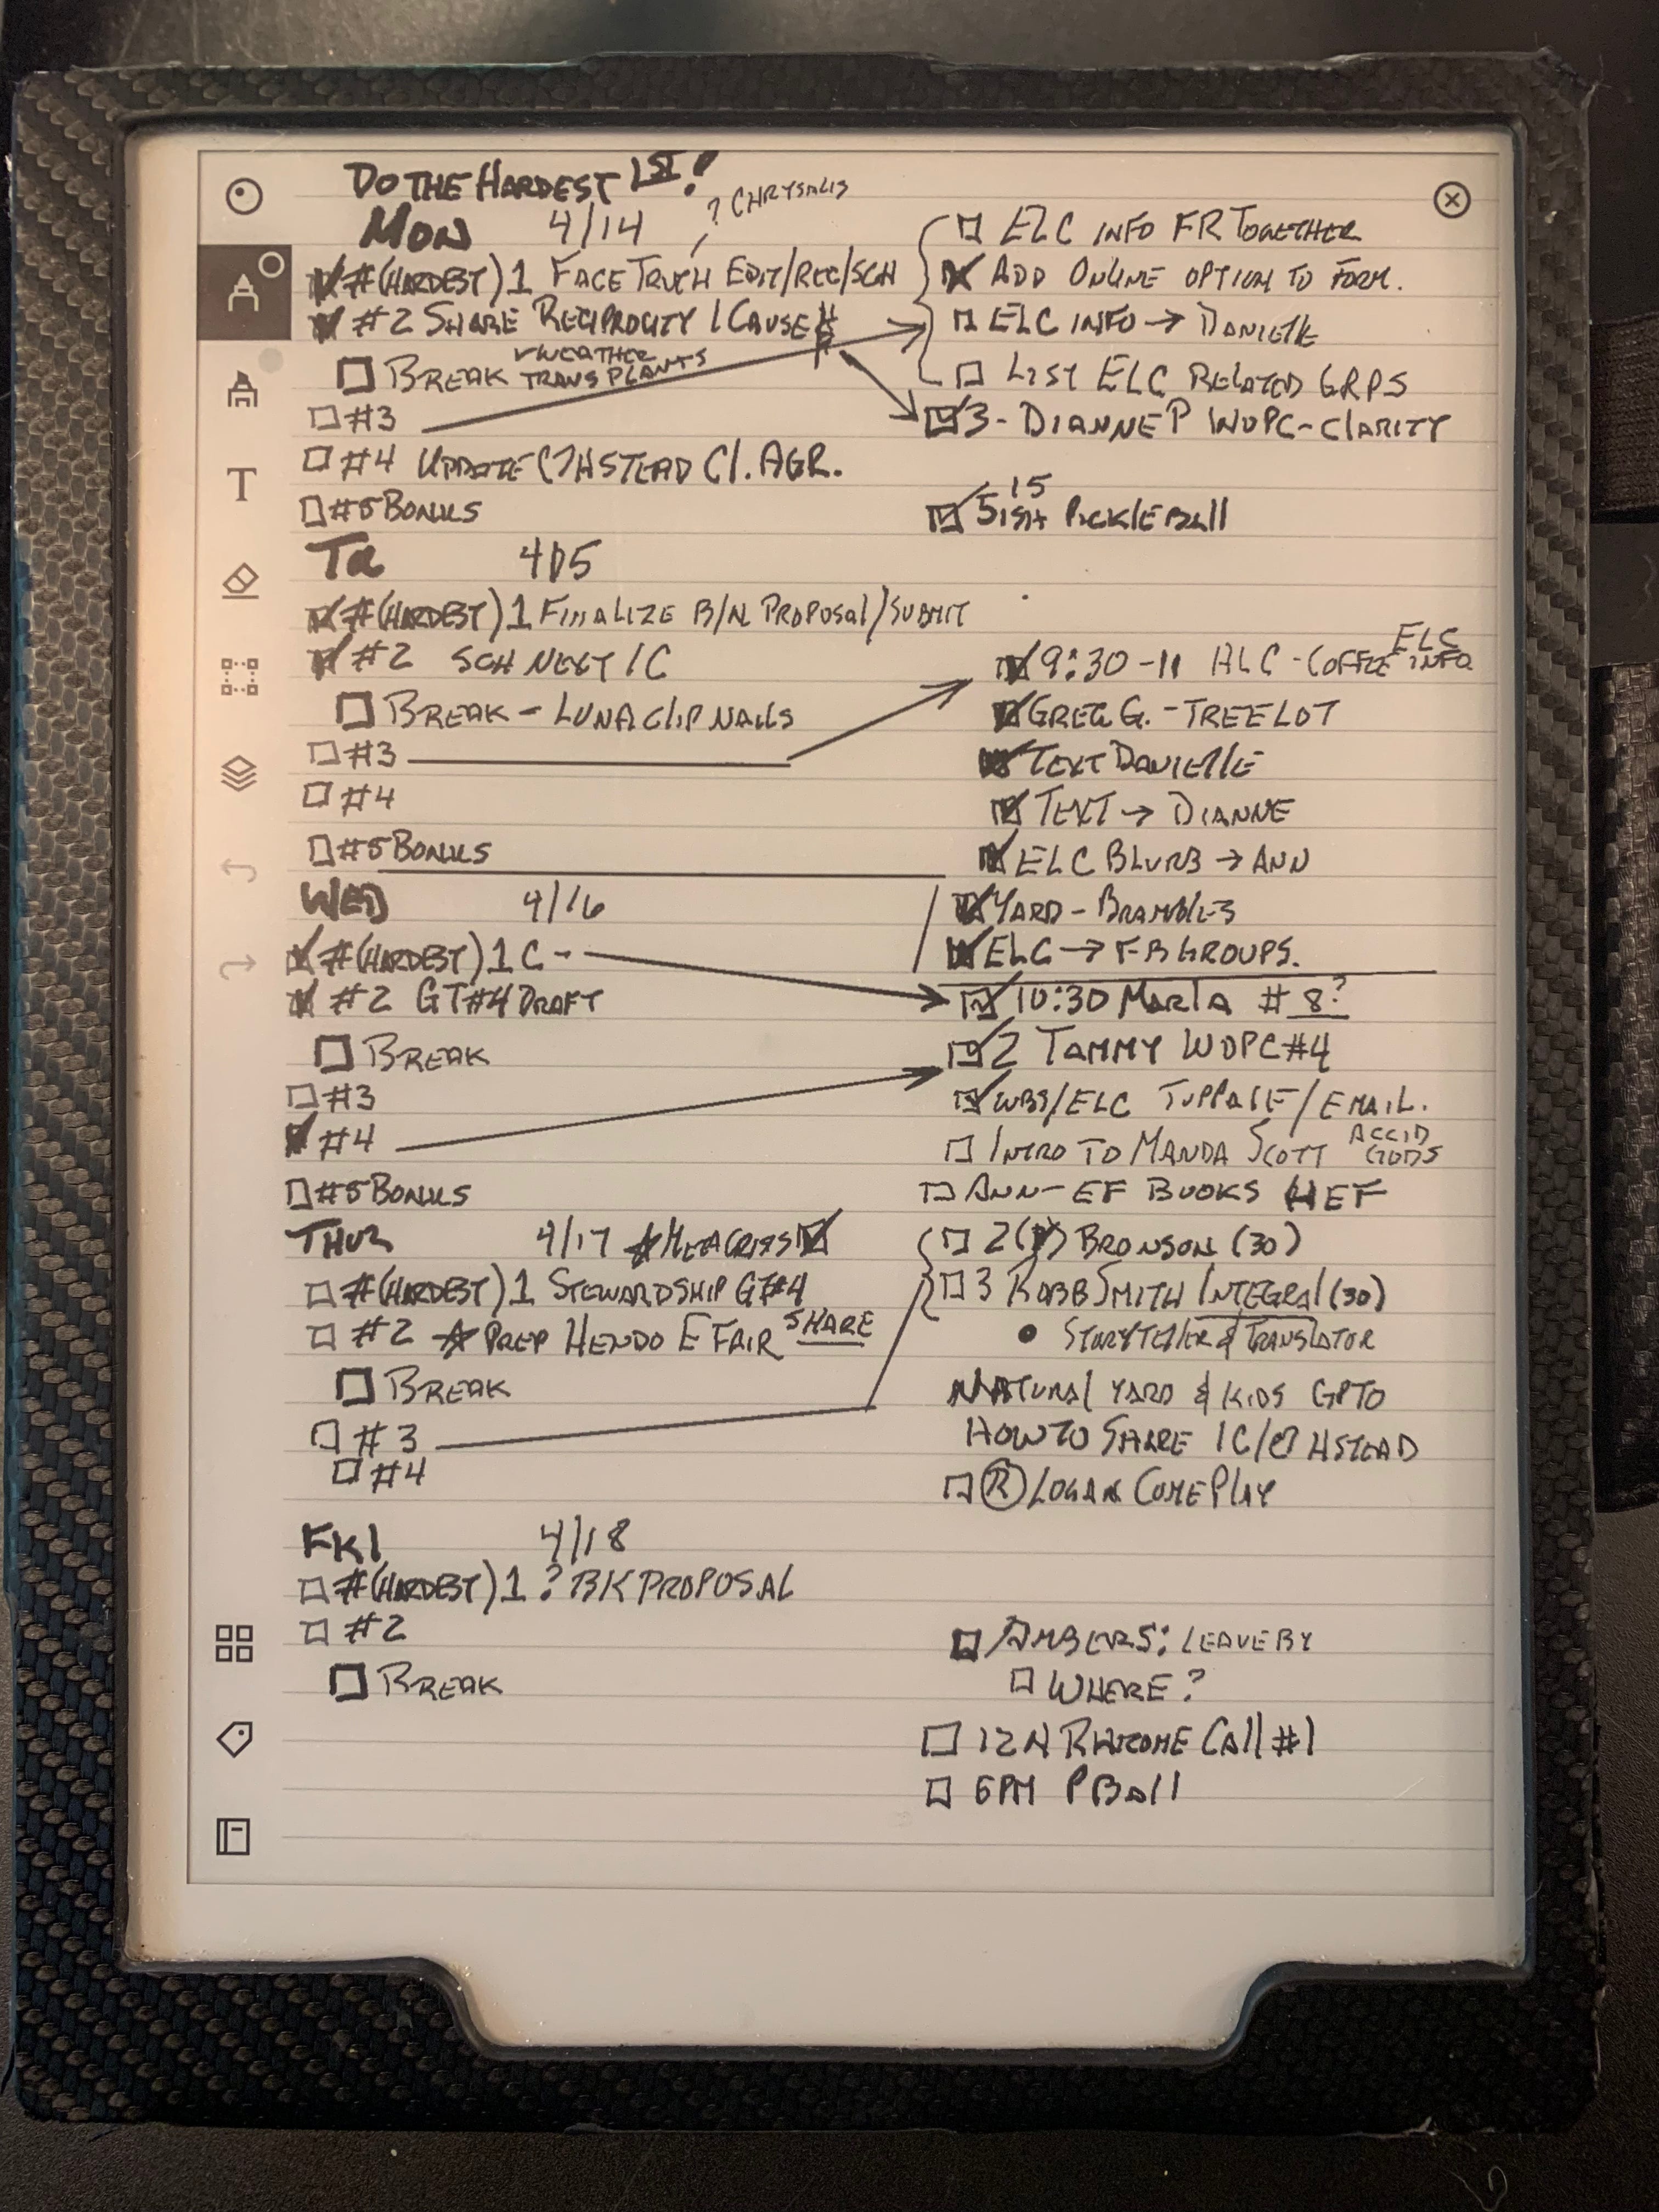 DO THE HARDEST 1ST!
MON 4/14 ? CHRYSALIS
#(HARDEST) 1 FACE TRUTH EDIT/REC/SCH
#2 SHARE RECIPROCITY / CAUSE
BREAK WEATHER TRANSPLANTS
#3
#4 UPDATE HSTEAD CI. AGR.
#5 BONUS
ELC INFO FR TOGETHER
ADD ONLINE OPTION TO FORM.
ELC INFO → DANIELLE
LIST ELC RELATED GRPS
3 - DIANNE P WOPC-CLARITY
15
5ISH PICKLEBALL
TU 4/15
#(HARDEST) 1 FINALIZE B/N PROPOSAL/SUBMIT
#2 SCH NEXT IC
BREAK - LUNA CLIP NAILS
#3
#4
#5 BONUS
9:30-11 ALC - COFFEE ELC INFO
GREG G. - TREE LOT
TEXT DANIELLE
TEXT → DIANNE
ELC BLURB → ANN
YARD - BRAMBLES
ELC → FB GROUPS.
WED 4/16
#(HARDEST) 1 C -
#2 GT#4 DRAFT
BREAK
#3
#4
#5 BONUS
10:30 MARTA # 8?
2 TAMMY WOPC#4
WBS/ELC /EMAIL.
INTRO TO MANDA SCOTT ACCID GODS
ANN - EF BOOKS HEF
THUR 4/17 METACRISIS
#(HARDEST) 1 STEWARDSHIP GT#4
#2 PREP HENDO E FAIR SHARE
BREAK
#3
#4
2 BRONSON (30)
3 ROBB SMITH INTEGRAL (30)
• STORYTELLER & TRANSLATOR
NATURAL YARD & KIDS GPTO
HOW TO SHARE IC/ HSTEAD
Ⓡ LOGAN COME PLAY
FRI 4/18
#(HARDEST) 1 ? BK PROPOSAL
#2
BREAK
AMBERS: LEAVE BY
WHERE?
12N RHIZOME CALL #1
6PM PBALL